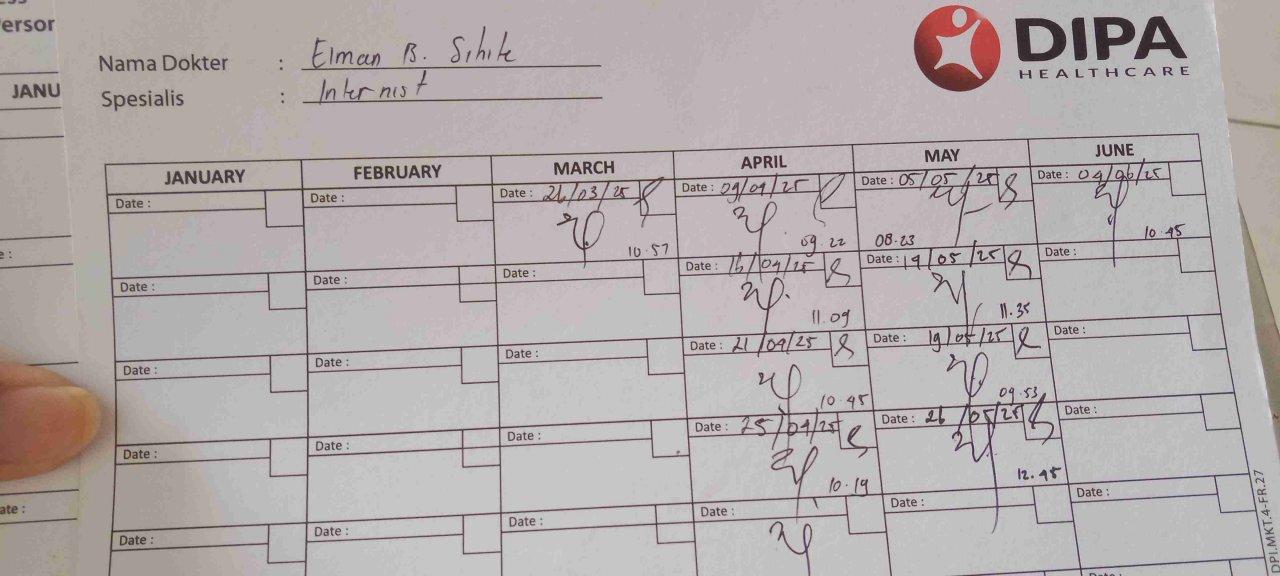 ersor
JANU
DIPA
HEALTHCARE
Nama Dokter : Elman B. Sihite
Spesialis : Internist
JANUARY FEBRUARY MARCH APRIL MAY JUNE
Date : Date : Date : 26/03/25 Date : 09/04/25 Date : 05/05/25 Date : 04/06/25
10.57 09.22 08.23 10.45
Date : Date : Date : Date : 16/04/25 Date : 14/05/25 Date :
11.09 11.35
Date : Date : Date : Date : 21/04/25 Date : 19/05/25 Date :
10.45 09.53
Date : Date : Date : Date : 25/04/25 Date : 26/05/25 Date :
10.19 12.45
Date : Date : Date : Date : Date : Date :
DPI.MKT.4-FR.27